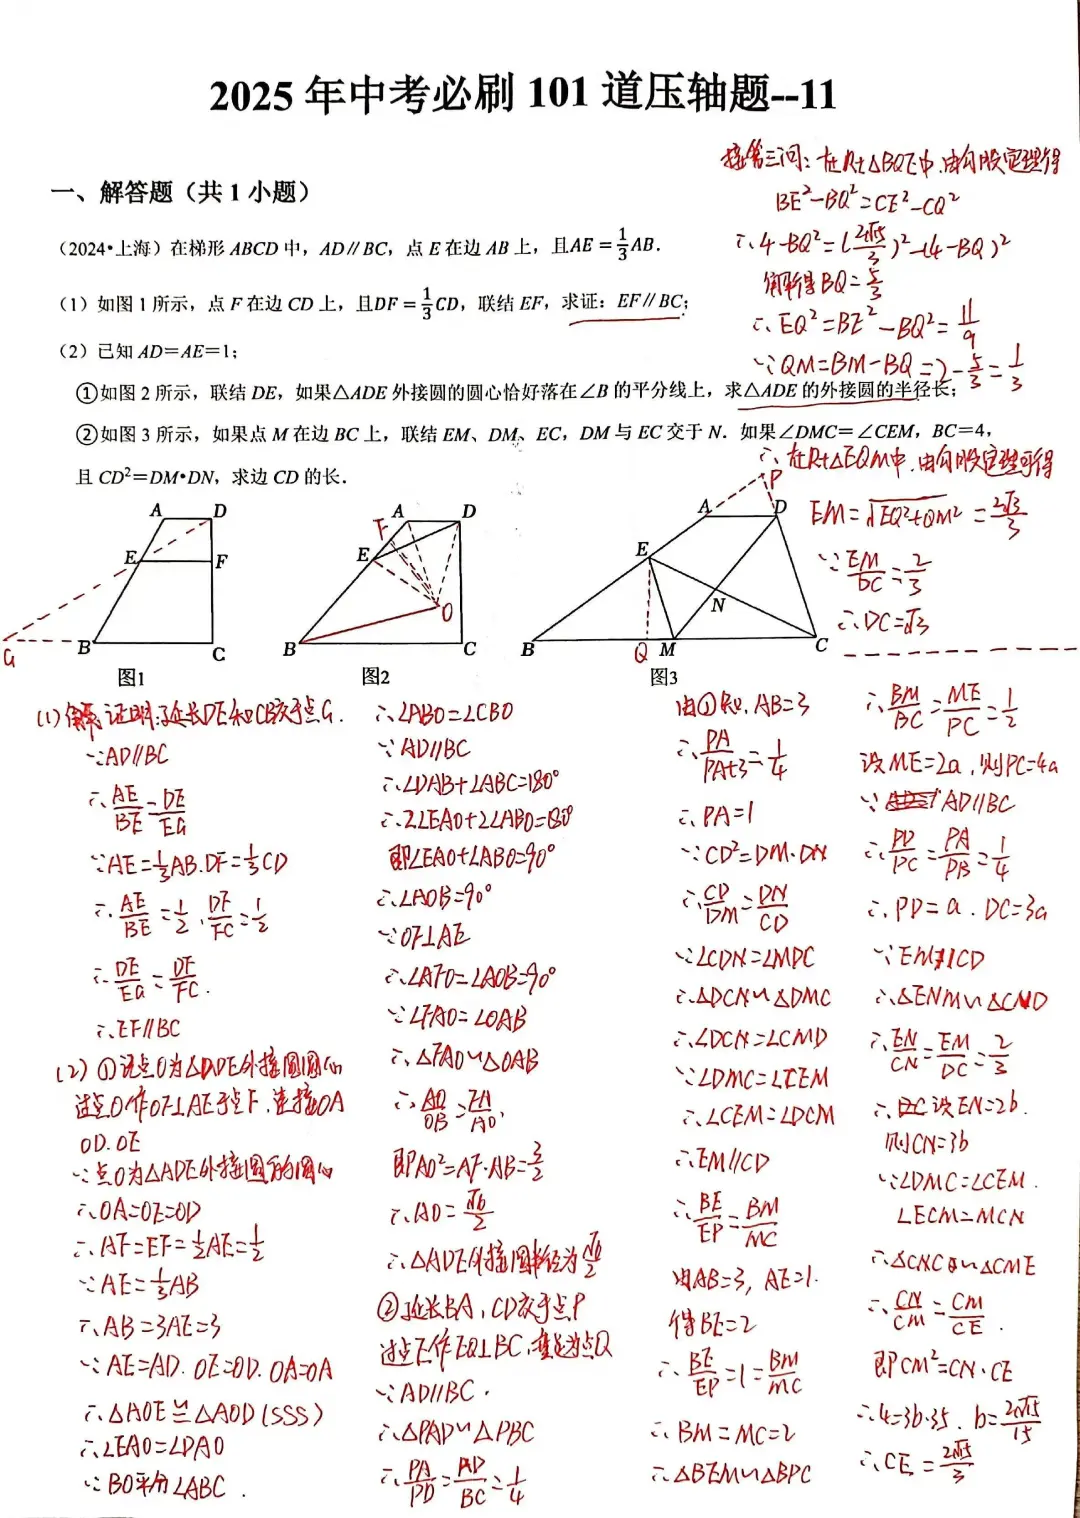 2025 年中考必刷 101 道压轴题--11
一、解答题（共 1 小题）
（2024•上海）在梯形 ABCD 中，AD∥BC，点 E 在边 AB 上，且AE = 1/3 AB．
（1）如图 1 所示，点 F 在边 CD 上，且DF = 1/3 CD，联结 EF，求证：EF∥BC；
（2）已知 AD＝AE＝1；
①如图 2 所示，联结 DE，如果△ADE 外接圆的圆心恰好落在∠B 的平分线上，求△ADE 的外接圆的半径长；
②如图 3 所示，如果点 M 在边 BC 上，联结 EM、DM、EC，DM 与 EC 交于 N．如果∠DMC＝∠CEM，BC＝4，
且 CD²＝DM•DN，求边 CD 的长．
接第三问：在Rt△BQE中，由勾股定理得
BE²-BQ²=CE²-CQ²
∴4-BQ²=(2√15/3)²-(4-BQ)²
解得BQ=5/3
∴EQ²=BE²-BQ²=11/9
∵QM=BM-BQ=2-5/3=1/3
∴在Rt△EQM中，由勾股定理可得
EM=√EQ²+QM²=2√3/3
∵EM/DC=2/3
∴DC=√3
A D
E F
G B C
图1
A D
F
E
O
B C
图2
P
A D
E
N
B Q M C
图3
(1)解 证明：延长DE和CB交于点G.
∵AD∥BC
∴AE/BE=DE/EG
∵AE=1/3AB.DF=1/3CD
∴AE/BE=1/2,DF/FC=1/2
∴DE/EG=DF/FC.
∴EF∥BC
(2)①设点O为△ADE外接圆圆心
过点O作OF⊥AE于点F,连接OA
OD.OE
∵点O为△ADE外接圆的圆心
∴OA=OE=OD
∴AF=EF=1/2AE=1/2
∵AE=1/3AB
∴AB=3AE=3
∵AE=AD.OE=OD.OA=OA
∴△AOE≌△AOD(SSS)
∴∠EAO=∠DAO
∵BO平分∠ABC.
∴∠ABO=∠CBO
∵AD∥BC
∴∠DAB+∠ABC=180°
∴2∠EAO+2∠ABO=180°
即∠EAO+∠ABO=90°
∴∠AOB=90°
∵OF⊥AE
∴∠AFO=∠AOB=90°
∵∠FAO=∠OAB
∴△FAO∽△OAB
∴AO/OB=FA/AO,
即AO²=AF·AB=3/2
∴AO=√6/2
∴△ADE外接圆半径为√6/2
②延长BA,CD交于点P
过点E作EQ⊥BC,垂足为点Q
∵AD∥BC.
∴△PAD∽△PBC
∴PA/PD=AD/BC=1/4
由①知.AB=3
∴PA/PA+3=1/4
∴PA=1
∵CD²=DM·DN
∴CD/DM=DN/CD
∵∠CDN=∠MDC
∴△DCN∽△DMC
∴∠DCN=∠CMD
∵∠DMC=∠CEM
∴∠CEM=∠DCM
∴EM∥CD
∴BE/EP=BM/MC
由AB=3,AE=1.
得BE=2
∴BE/EP=1=BM/MC
∴BM=MC=2
∴△BEM∽△BPC
∴BM/BC=ME/PC=1/2
设ME=2a,则PC=4a
∵AD∥BC
∴PD/PC=PA/PB=1/4
∴PD=a.DC=3a
∵EM∥CD
∴△ENM∽△CND
∴EN/CN=EM/DC=2/3
∴设EN=2b.
则CN=3b
∵∠DMC=∠CEM.
∠ECM=MCN
∴△CNC∽△CME
∴CN/CM=CM/CE.
即CM²=CN·CE
∴4=3b·35.b=2√15/15
∴CE=2√15/3